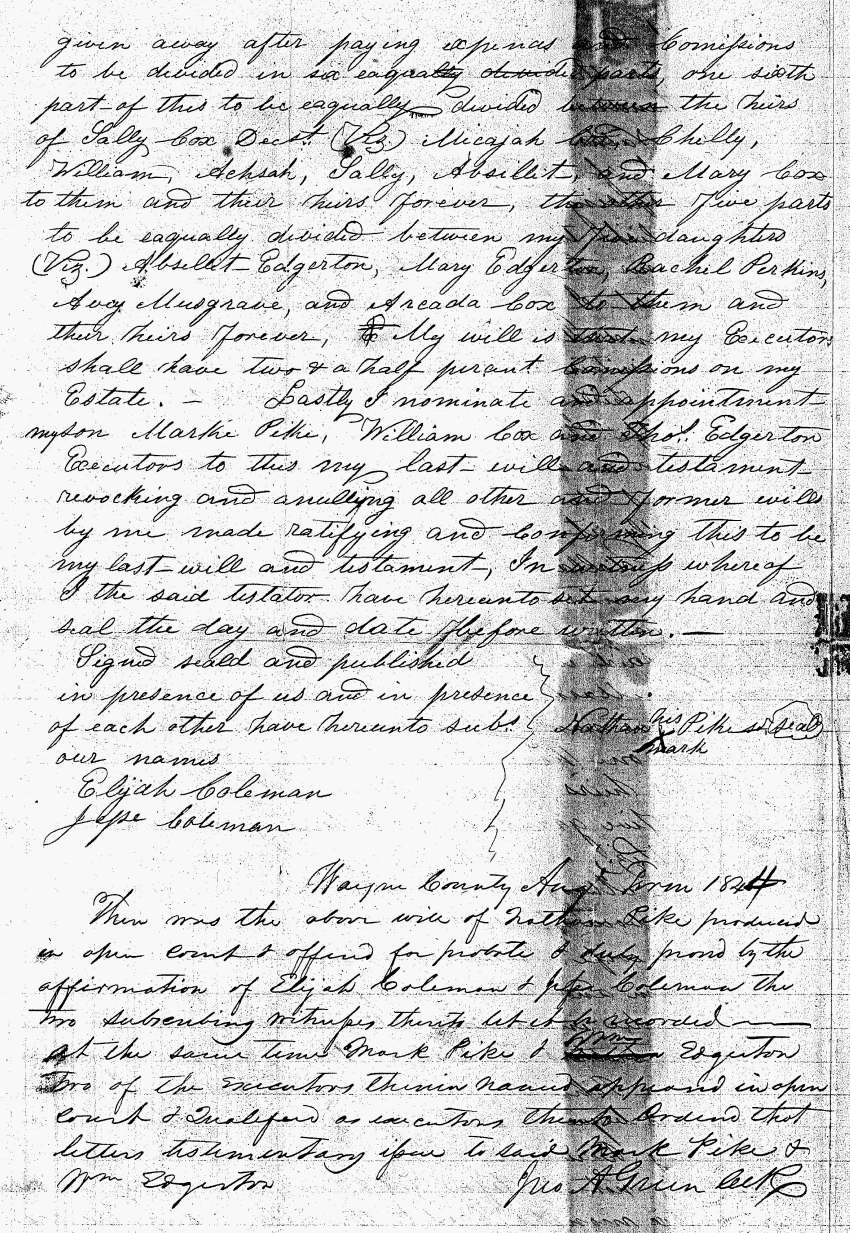 given away after paying expences and Comissions
to be divided in six eaqually divided parts, one sixth
part of this to be eaqually divided between the heirs
of Sally Cox Decst. (Viz.) Micajah Chelly,
William, Achsah, Sally, Absillit, and Mary Cox
to them and their heirs forever, the other Five parts
to be eaqually divided between my Five daughters
(Viz.) Absillet Edgerton, Mary Edgerton, Rachel Perkins,
Avey Musgrave, and Arcada Cox to them and
their heirs forever, My will is that my Executors
shall have two & a half percent Comissions on my
Estate. – Lastly I nominate and appointment
my son Markie Pike, William Cox and Thos. Edgerton
Executors to this my last will and testament
revocking and anulling all other and former wills
by me made ratifying and Confirming this to be
my last will and testament, In witness whereof
I the said testator have hereunto set my hand and
seal the day and date before written. –
Signd seald and published
in presence of us and in presence
of each other have hereunto subs. Nathan his Pike sr seal
our names X mark
Elijah Coleman
Jesse Coleman
Wayne County Augt Term 1844
Then was the above will of Nathan Pike produced
in open Court & offered for probate & duly proved by the
affirmation of Elijah Coleman & Jesse Coleman the
two subscribing witnesses thereto let it be recorded
At the same time Mark Pike & Wm Edgerton
two of the executors therein named appeared in open
Court & Qualifed as executors thereto Ordered that
letters testimentary issue to said Mark Pike &
Wm Edgerton Jno A. Green Clk